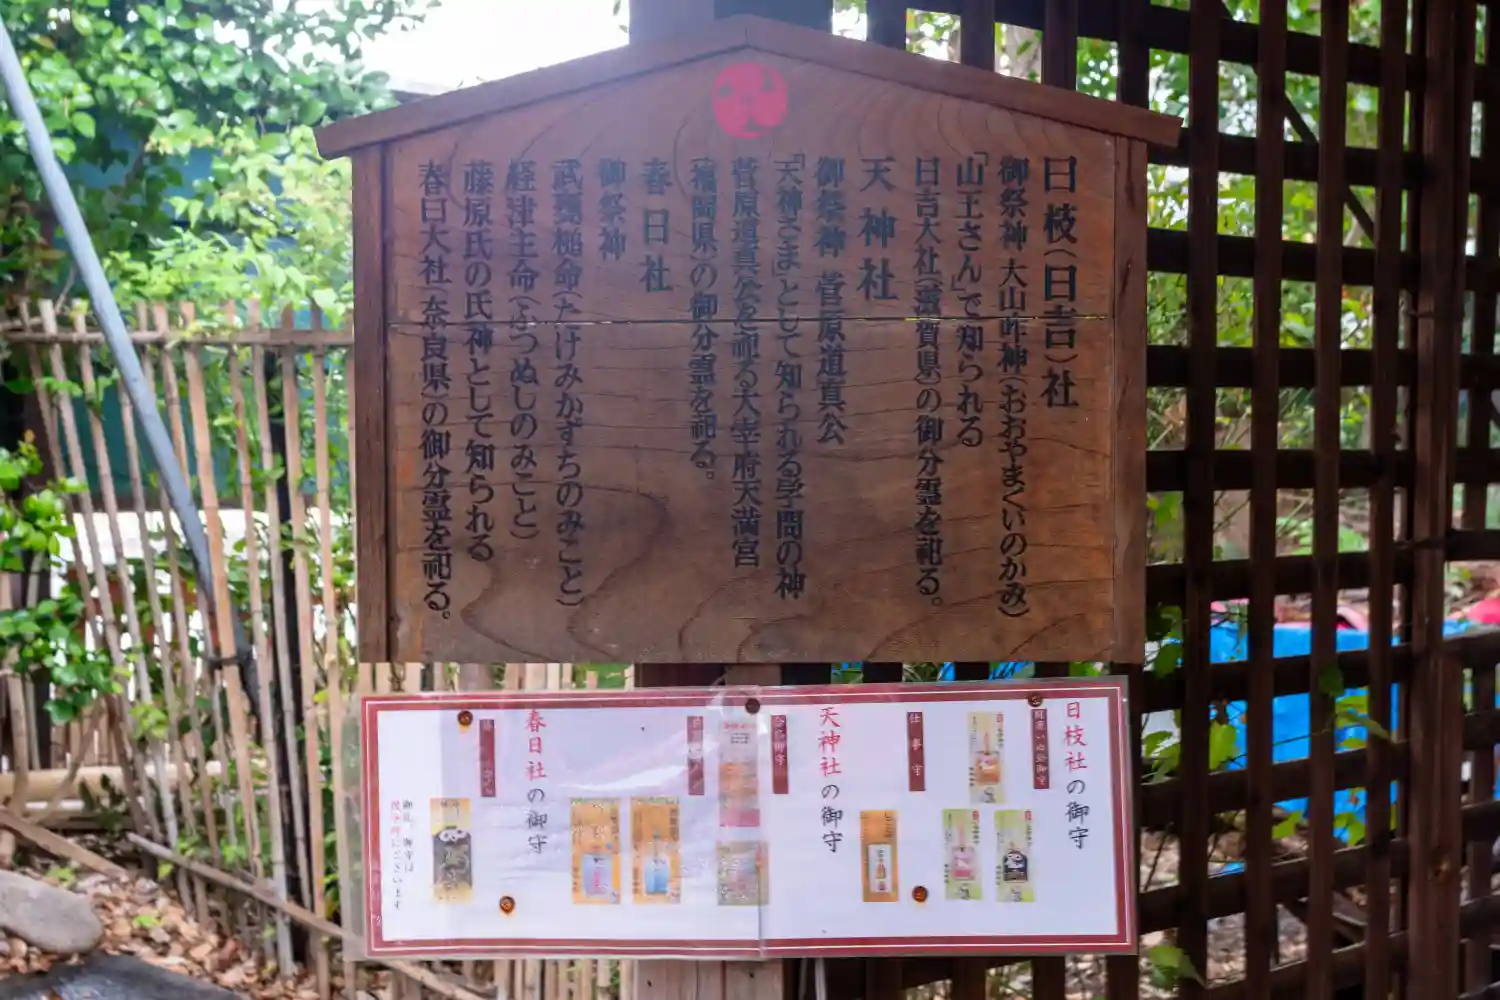 日枝(日吉)社
御祭神 大山咋神(おおやまくいのかみ)
「山王さん」で知られる
日吉大社(滋賀県)の御分霊を祀る。
天神社
御祭神 菅原道真公
「天神さま」として知られる学問の神
菅原道真公を祀る太宰府天満宮
(福岡県)の御分霊を祀る。
春日社
御祭神
武甕槌命(たけみかずちのみこと)
経津主命(ふつぬしのみこと)
藤原氏の氏神として知られる
春日大社(奈良県)の御分霊を祀る。
日枝社の御守
仕事守
天神社の御守
合格御守
春日社の御守
御札、御守は
授与所にございます